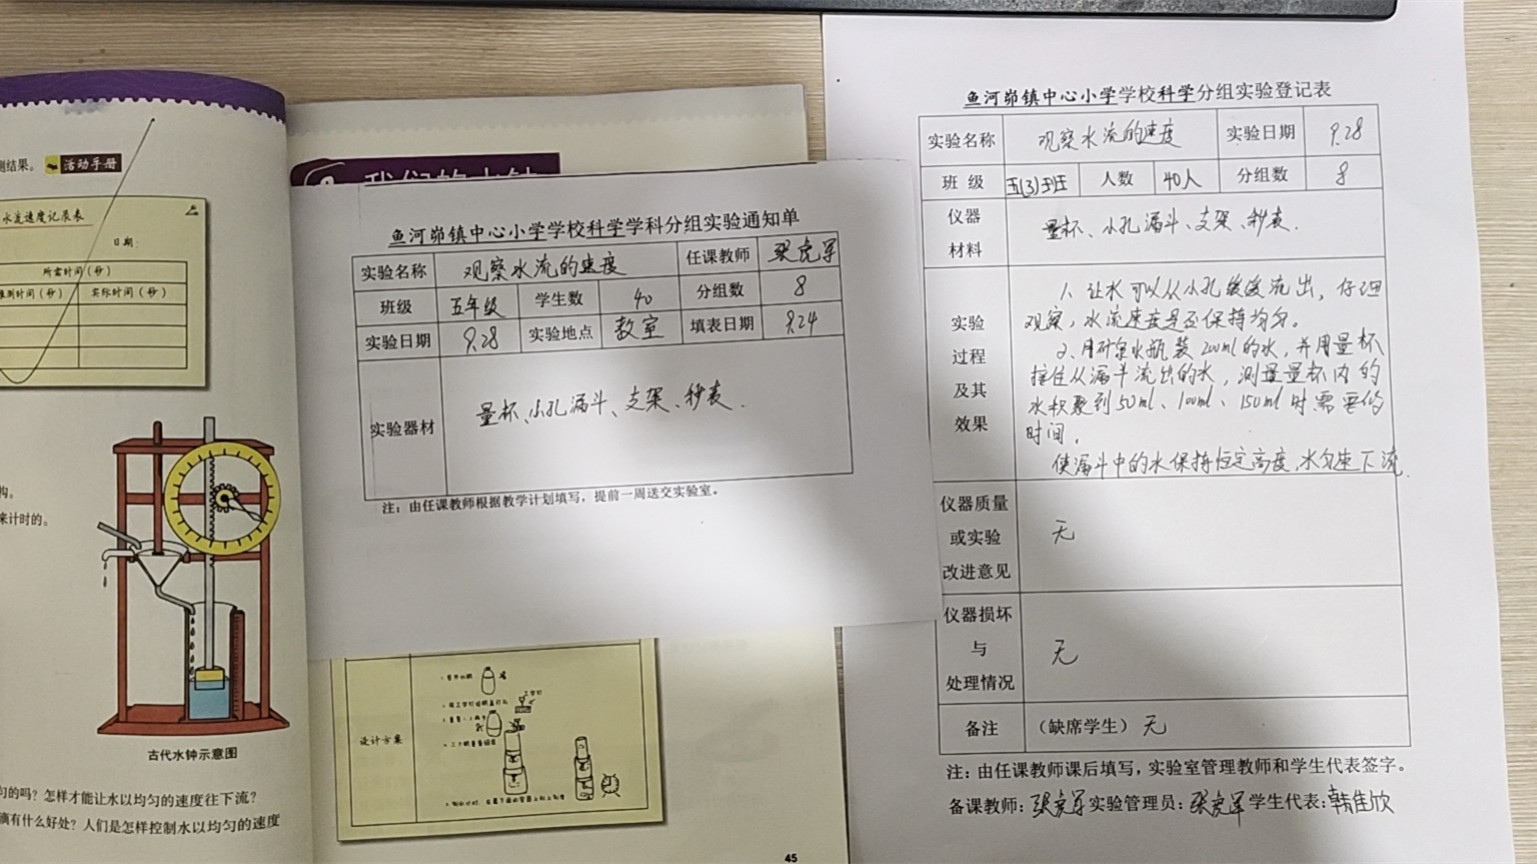 测结果。 活动手册
水流速度记录表
日期:
所需时间(秒)
推测时间(秒) 实际时间(秒)
构。
来计时的。
古代水钟示意图
匀的吗？怎样才能让水以均匀的速度往下流？
滴有什么好处？人们是怎样控制水以均匀的速度
鱼河峁镇中心小学学校科学学科分组实验通知单
实验名称 观察水流的速度 任课教师
班级 五年级 学生数 40 分组数 8
实验日期 9.28 实验地点 教室 填表日期 9.24
实验器材 量杯、小孔漏斗、支架、秒表.
注：由任课教师根据教学计划填写，提前一周送交实验室。
设计方案
45
鱼河峁镇中心小学学校科学分组实验登记表
实验名称 观察水流的速度 实验日期 9.28
班 级 五(3)班 人数 40人 分组数 8
仪器
材料
量杯、小孔漏斗、支架、秒表.
实验
过程
及其
效果
1、让水可以从小孔缓缓流出，仔细
观察，水流速度是否保持均匀。
2、用矿泉水瓶装200ml的水，并用量杯
接住从漏斗流出的水，测量量杯内的
水积聚到50ml、100ml、150ml时需要的
时间。
使漏斗中的水保持恒定高度，水匀速下流.
仪器质量
或实验
改进意见
无
仪器损坏
与
处理情况
无
备注 (缺席学生) 无
注：由任课教师课后填写，实验室管理教师和学生代表签字。
备课教师: 实验管理员: 学生代表: 韩佳欣